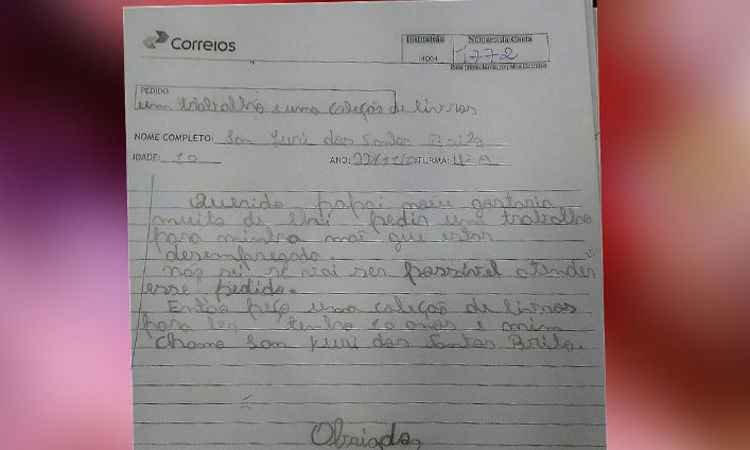 Correios
Instituição Número da Carta
1772
PEDIDO:
um trabalho e uma coleção de livros
NOME COMPLETO: Son Yuri dos Santos Brito
IDADE: 10 ANO: TURMA: 4º A
Querido papai noeu gostaria
muito de lhri pedir um trabalho
para minha mãe que estar
desempregada.
não sei se vai ser possível atender
esse pedido.
Então peço uma coleção de livros
para ler tenho 10 anos e mim
chamo Son Yuri dos Santos Brito.
Obrigado